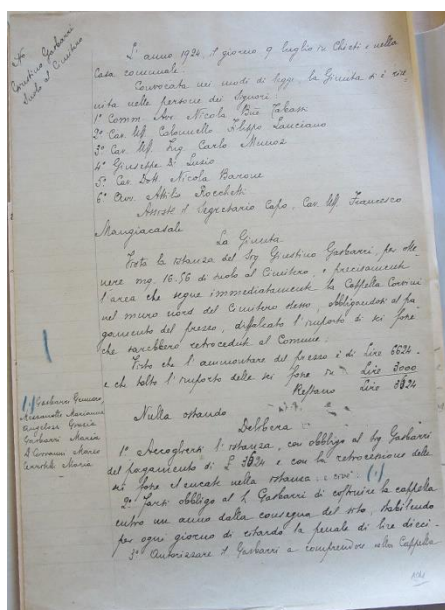 Giustino Gasbarri
suolo al Cimitero
L'anno 1924, il giorno 9 luglio in Chieti e nella
Casa comunale.
Convocata nei modi di legge, la Giunta si è riu-
nita nelle persone dei Signori:
1° Comm. Avv. Nicola
2° Cav. Uff. Colonnello Filippo Lanciano
3° Cav. Uff. Ing. Carlo Munoz
4° Giuseppe Di Lisio
5° Cav. Dott. Nicola Barone
6° Cav. Attilio Bocchetti
Assiste il Segretario Capo, Cav. Uff. Francesco
Mangiacasale
La Giunta
Vista la istanza del Sig. Giustino Gasbarri, per otte-
nere mq. 16.56 di suolo al Cimitero, e precisamente
l'area che segue immediatamente la Cappella Corsini
nel muro nord del Cimitero stesso, obbligandosi al pa-
gamento del prezzo, difalcato l'importo di sei fosse
che sarebbero retrocedute al Comune.
Visto che l'ammontare del prezzo è di Lire 6624.-
e che tolto l'importo delle sei fosse in Lire 3000
Restano Lire 3624
Nulla ostando
Delibera
1° Accogliersi l'istanza, con obbligo al Sig. Gasbarri
del pagamento di £ 3624 e con la retrocessione delle
sei fosse elencate nella istanza: e cioè: (1)
2° Farsi obbligo al S. Gasbarri di costruire la cappella
entro un anno dalla consegna del sito, stabilendo
per ogni giorno di ritardo la penale di lire dieci.-
3° Autorizzare il Gasbarri a comprendere nella Cappella
(1) Gasbarri Gennaro
Marianna
Angelosi Grazia
Gasbarri Maria
Maria